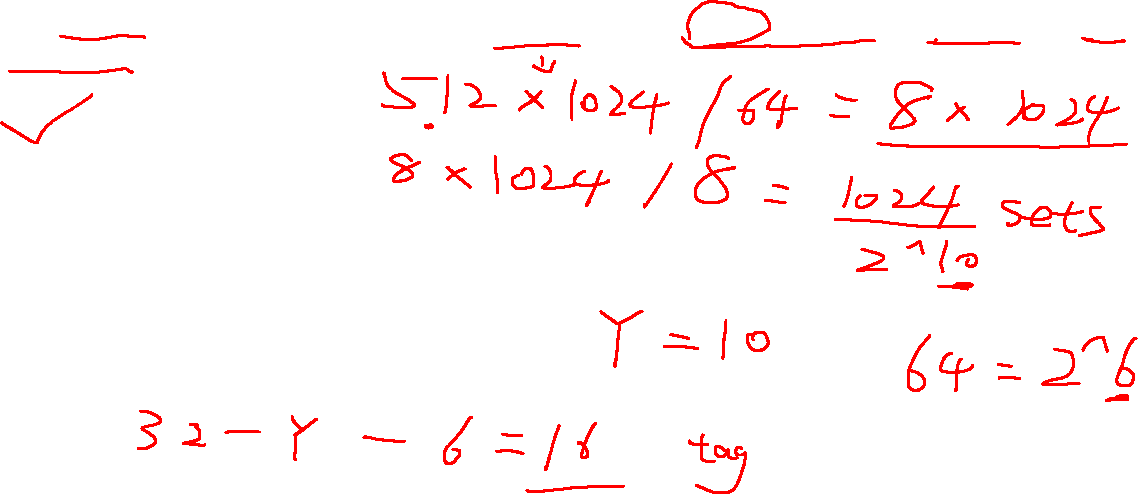 512 × 1024 / 64 = 8 × 1024
8 × 1024 / 8 = 1024 sets
2^10
Y = 10
64 = 2^6
32 - Y - 6 = 16 tag